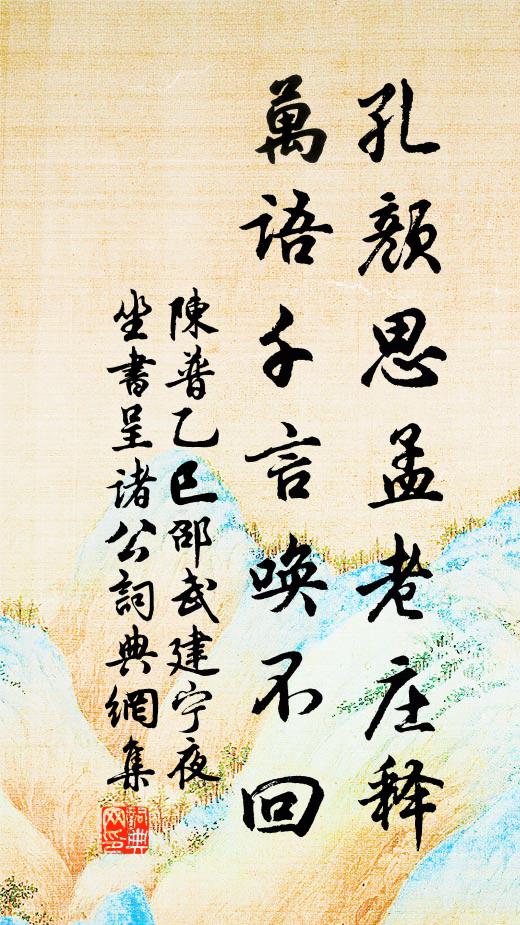 孔顔思孟老庄释
萬語千言唤不回
陳普乙巳邵武建宁夜
坐書呈诸公詞典網集
詞典
网印